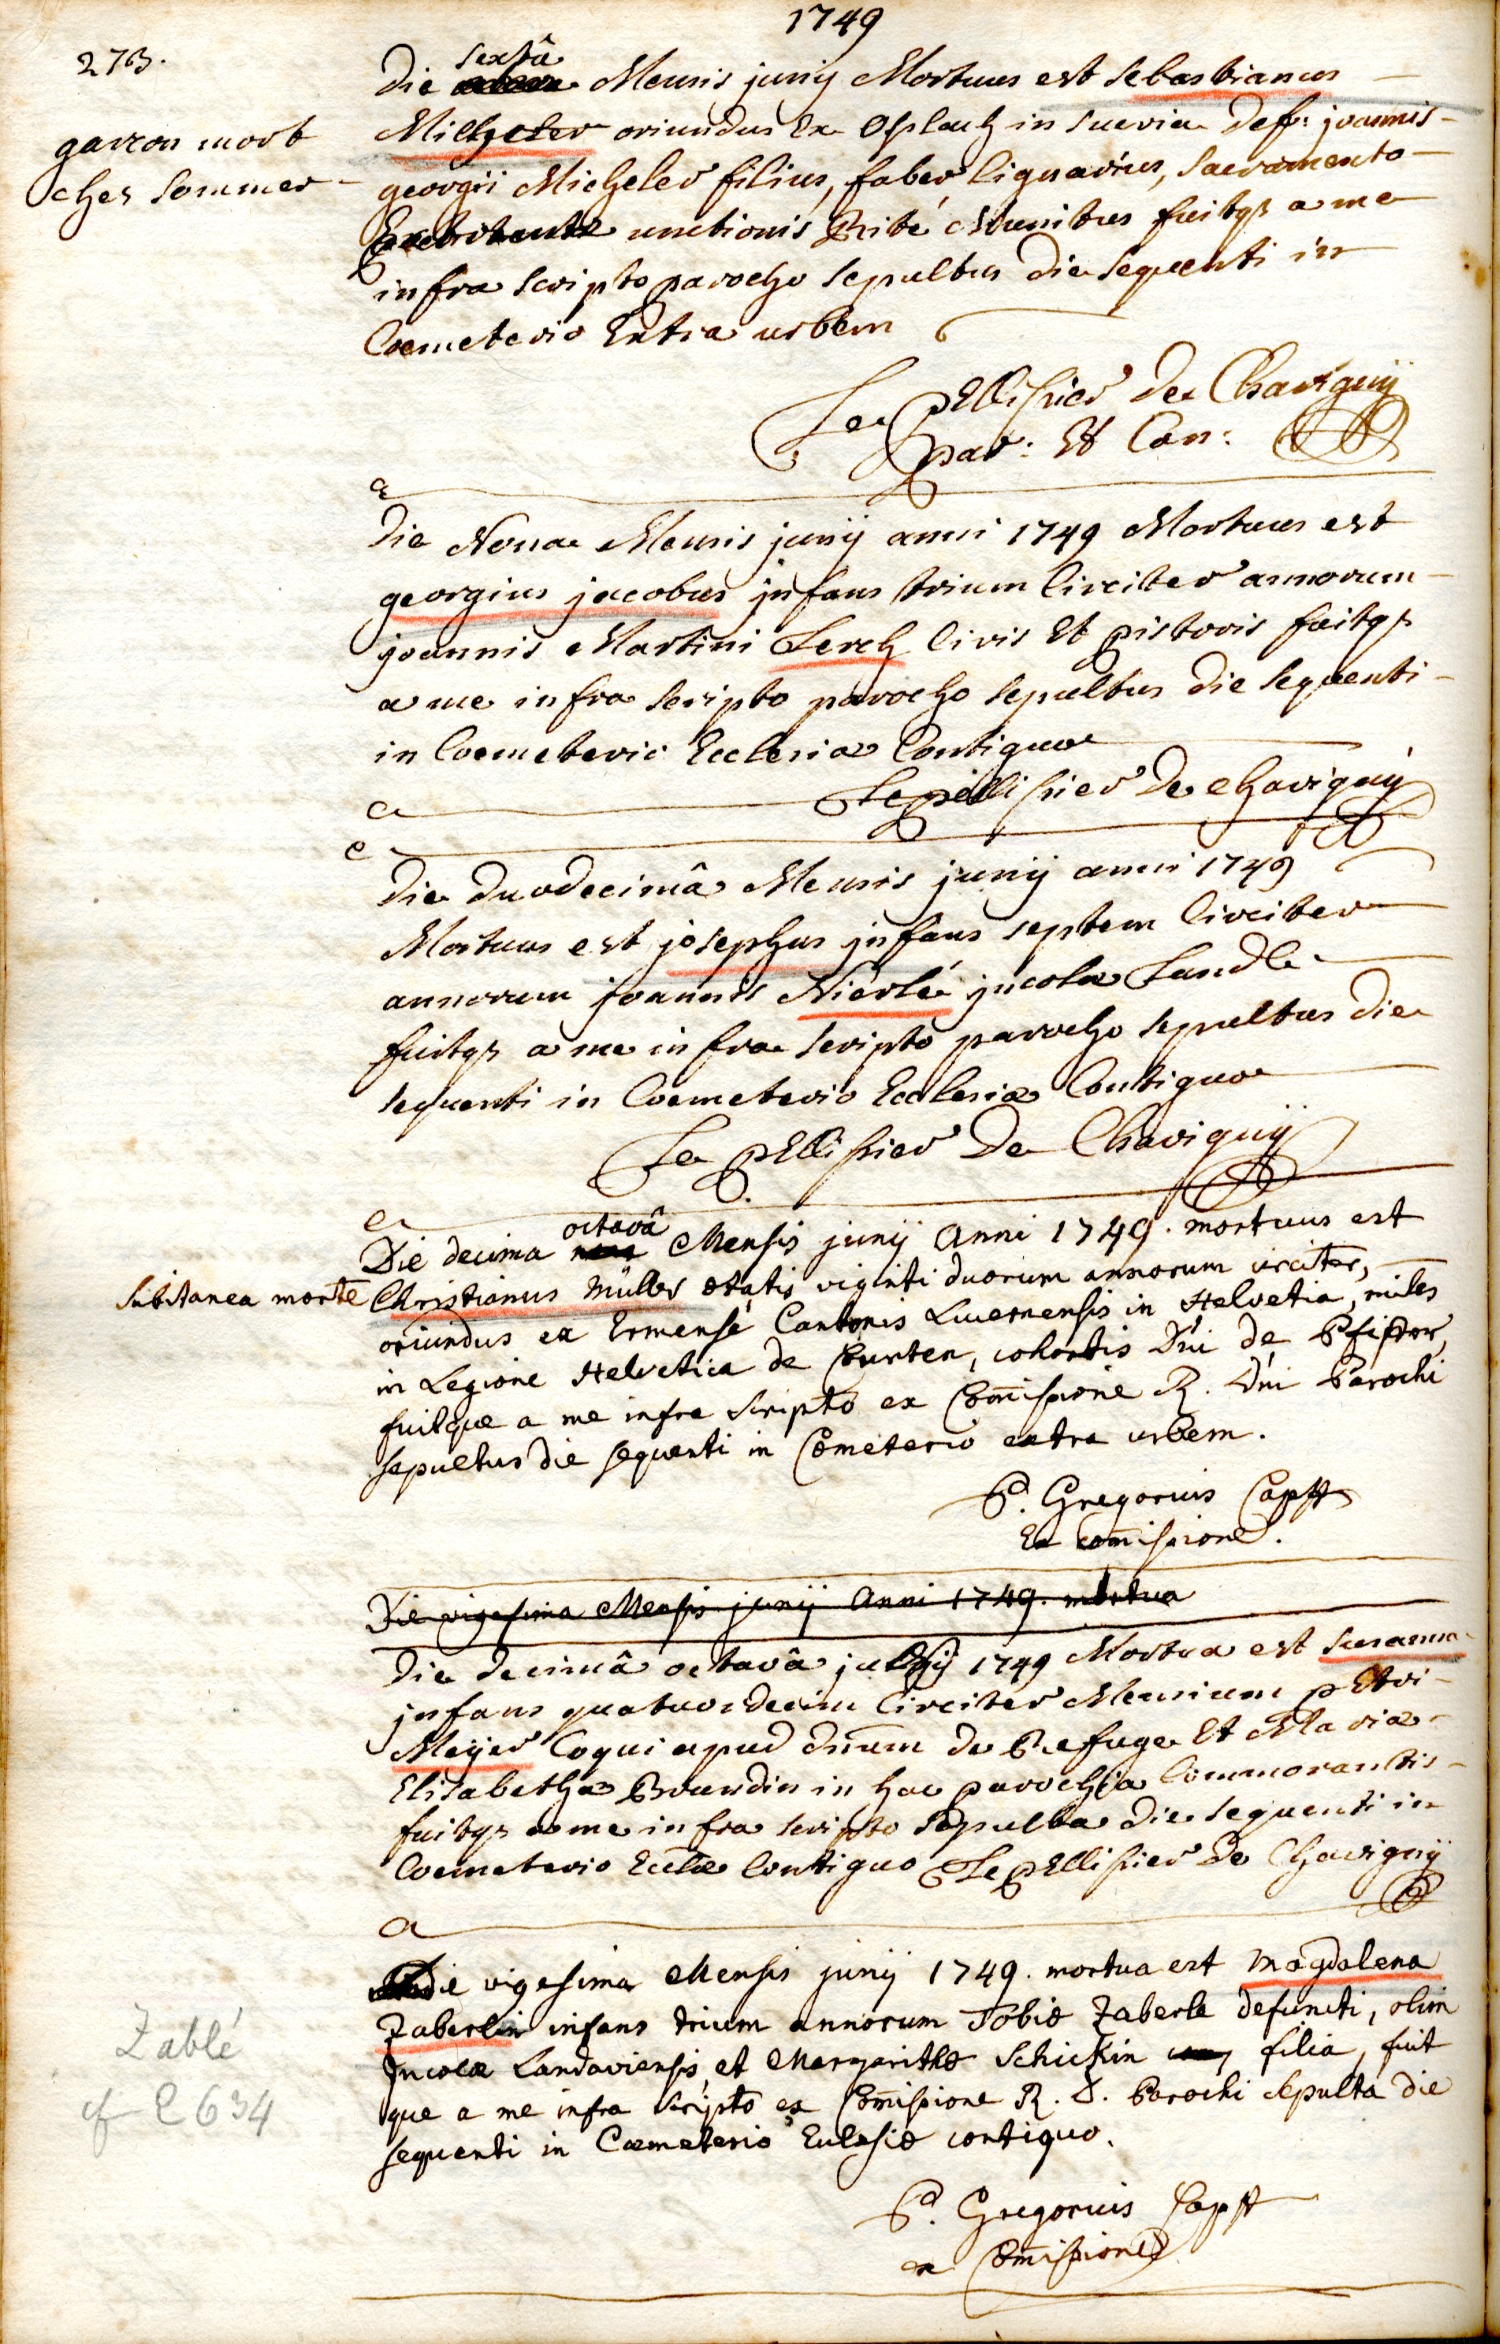 1749
273.
Die sextâ Mensis junij Mortuus est Sebastianus
Milhgeler oriundus Ex Oplach in suevia def: joannis
garzon mort
chez sommer
georgii Michgeler filius, faber lignarius, sacramento
Extremae unctionis Rité Munitus fuitq3 a me
infra scripto parocho sepultus die sequenti in
Coemeterio Extra urbem
Le pEllissier de Chavignÿ
par: Et Can:
Die Nona Mensis junij anni 1749 Mortuus est
georgius jacobus jnfans trium Circiter annorum
joannis Martini Lerch Civis Et pistoris fuitq3
a me infra scripto parocho sepultus die sequenti
in Coemeterio Ecclesiae Contiguo
Lepellissier de chavignÿ
Die duodecimâ Mensis junij anni 1749
Mortuus est josephus jnfans septem Circiter
annorum joannis Nierlé jncolae Landle
fuitq3 a me infra scripto parocho sepultus die
sequenti in Coemeterio Ecclesiae Contiguo
Le pEllissier De Chavignÿ
Die decima octavâ Mensis junij Anni 1749. mortuus est
Subitanea morte
Christianus Müller etatis viginti duorum annorum circiter,
oriundus ex Ermensé Cantonis Lucernensis in Helvetia, miles
in Legione Helvetica de Courten, cohortis Dni de Pfiffer,
fuitque a me infra scripto ex Com̄issione R. Dni Parochi
sepultus die sequenti in Cometerio extra urbem.
P. Gregorius Capst
Ex com̄issione.
Die vigesima Mensis junij Anni 1749. mortua
Die decimâ octavâ julij 1749 Mortua est Susanna
jnfans quatuordecim Circiter Mensium pEtri
Meyer Coqui apud dnum de Refuge Et Mariae
Elisabethae Brandin in hac parochia Commorantis
fuitq3 a me infra scripto sepulta die sequenti in
Coemeterio Eccliae Contiguo LepEllissier De Chavignÿ
Die vigesima Mensis junij 1749. mortua est Magdalena
Zaberlin infans trium annorum Tobie Zaberle defuncti, olim
Incolae Landaviensis, et Margarithe Schickin filia, fuit
Zablé
cf E 634
que a me infra scripto ex Com̄issione R. D. Parochi sepulta die
sequenti in Cæmeterio Eclesie contiguo.
P. Gregorius Capst
ex Com̄issione